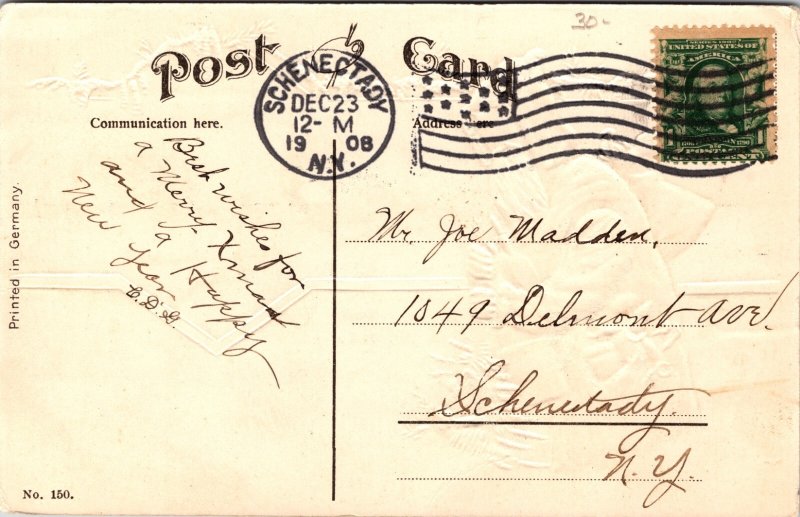 30-
Post Card
SCHENECTADY
DEC 23
12- M
1908
N.Y.
SERIES 1902
UNITED STATES OF
AMERICA
Communication here.
Address here
Best wishes for
a Merry Xmas
and a Happy
New Year
E.D.G.
Mr. Joe Madden.
1049 Delmont Ave.
Schenectady.
N.Y.
Printed in Germany.
No. 150.